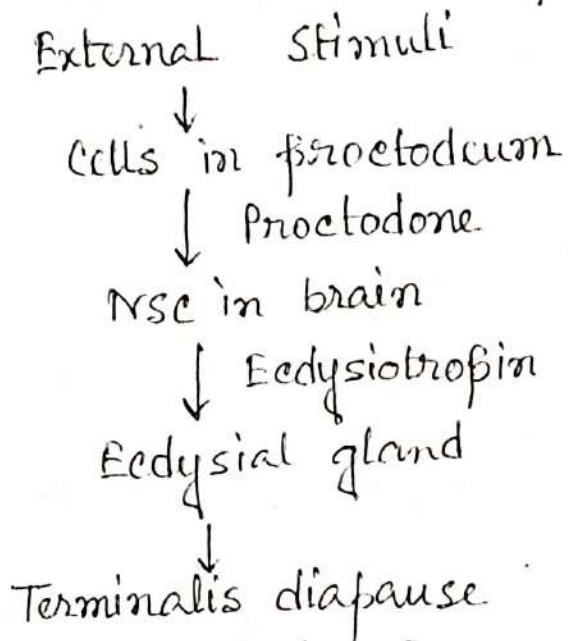 External Stimuli
↓
Cells in proctodeum
↓ Proctodone
NSC in brain
↓ Ecdysiotropin
Ecdysial gland
↓
Terminalis diapause